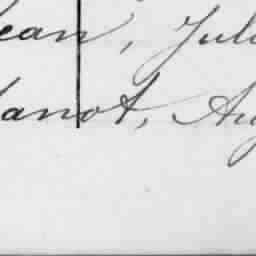 ean, Jul
anot, Au